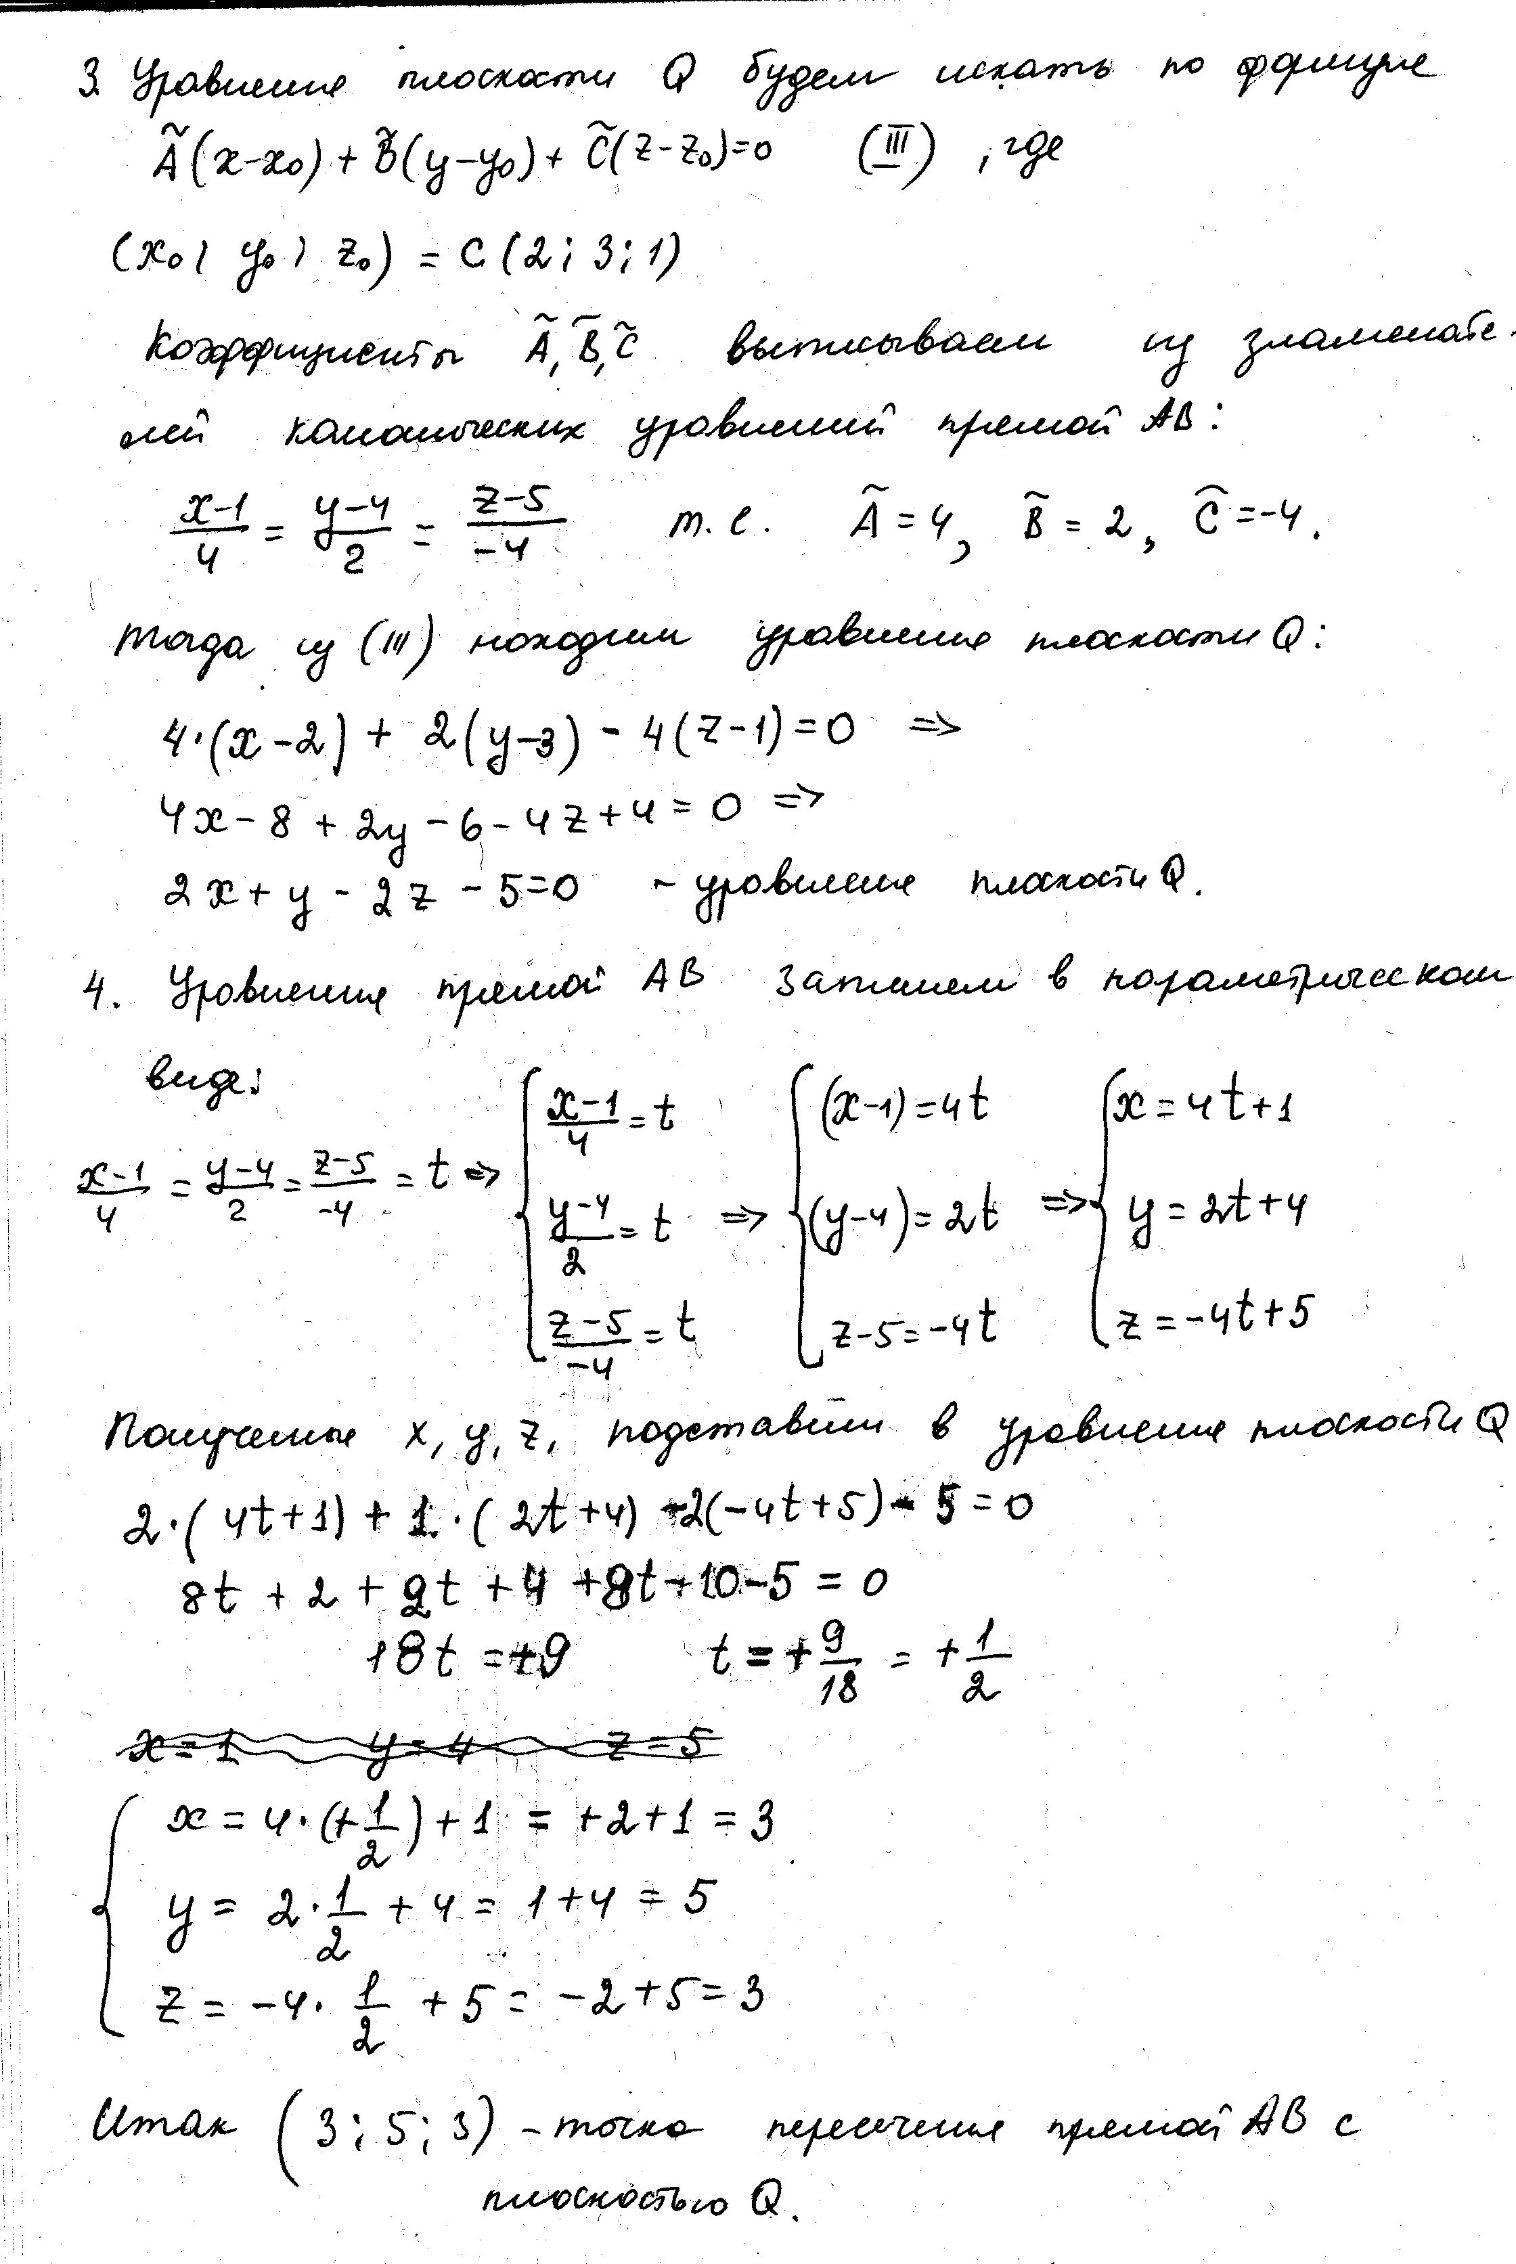 3. Уравнение плоскости Q будем искать по формуле
Ã(x-x₀) + B̃(y-y₀) + C̃(z-z₀)=0 (III) , где
(x₀; y₀; z₀) = C (2; 3; 1)
Коэффициенты Ã, B̃, C̃ выписываем из знаменате-
лей канонических уравнений прямой AB:
(x-1)/4 = (y-4)/2 = (z-5)/-4 т.е. Ã = 4, B̃ = 2, C̃ = -4.
Тогда из (III) находим уравнение плоскости Q:
4·(x-2) + 2(y-3) - 4(z-1)=0 =>
4x - 8 + 2y - 6 - 4z + 4 = 0 =>
2x + y - 2z - 5=0 - уравнение плоскости Q.
4. Уравнение прямой AB запишем в параметрическом
виде:
(x-1)/4 = (y-4)/2 = (z-5)/-4 = t => { (x-1)/4 = t => { (x-1)=4t => { x=4t+1
(y-4)/2 = t (y-4)=2t y=2t+4
(z-5)/-4 = t z-5=-4t z=-4t+5
Полученные x, y, z, подставим в уравнение плоскости Q
2·(4t+1) + 1·(2t+4) -2(-4t+5) - 5 = 0
8t + 2 + 2t + 4 + 8t - 10 - 5 = 0
18t = +9 t = + 9/18 = + 1/2
x=1 y=4 z=5
{ x = 4·(+1/2) + 1 = +2+1 = 3
y = 2·1/2 + 4 = 1+4 = 5
z = -4·1/2 + 5 = -2+5 = 3
Итак (3; 5; 3) - точка пересечения прямой AB с
плоскостью Q.